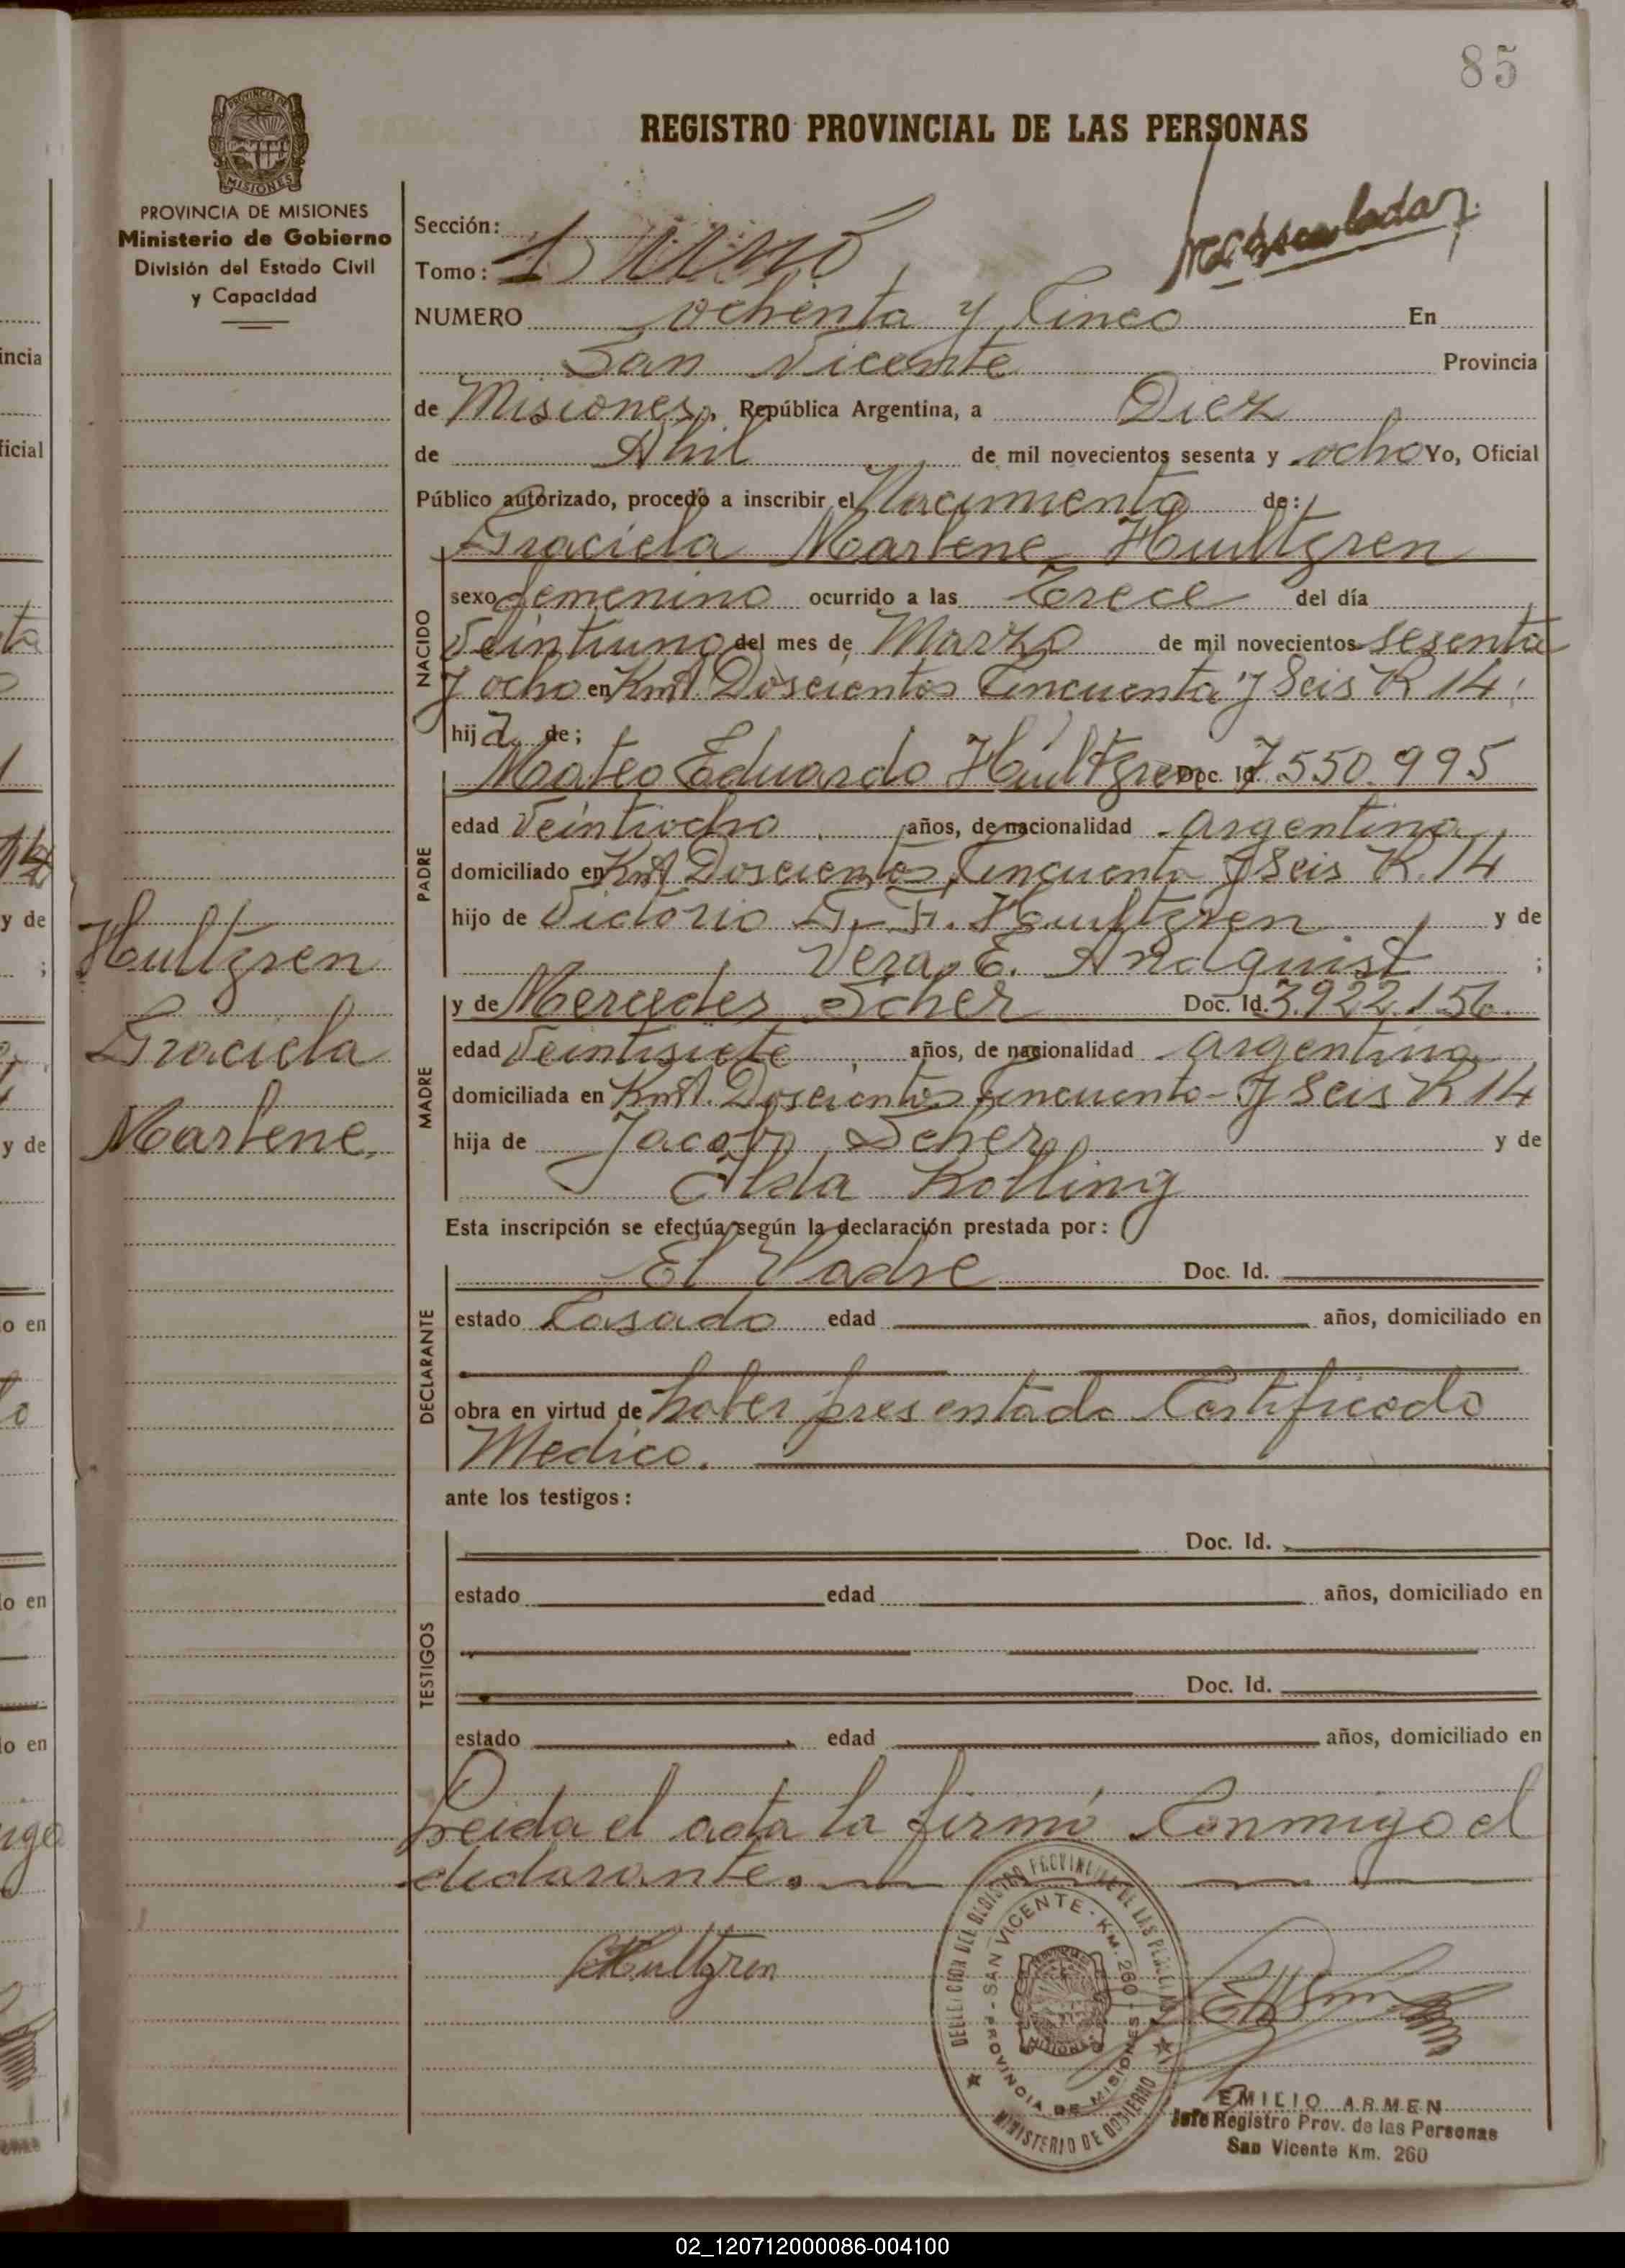 85
REGISTRO PROVINCIAL DE LAS PERSONAS
PROVINCIA DE MISIONES
Ministerio de Gobierno
División del Estado Civil
y Capacidad
Sección:
Tomo: 1
NUMERO ochenta y Cinco En
San Vicente Provincia
de Misiones, República Argentina, a Diez
de Abril de mil novecientos sesenta y ocho Yo, Oficial
Público autorizado, procedo a inscribir el Nacimiento de:
Graciela Marlene Hultgren
NACIDO
sexo femenino ocurrido a las Trece del día
Veintiuno del mes de Marzo de mil novecientos sesenta
y ocho en Kmt Doscientos Cincuenta y Seis R 14
hija de;
PADRE
Mateo Eduardo Hultgren Doc. Id. 7.550.995
edad Veintiocho años, de nacionalidad argentina
domiciliado en Kmt Doscientos Cincuenta y Seis R. 14
hijo de Victorio G. F. Hultgren y de
Vera E. Andquist ;
MADRE
y de Mercedes Scher Doc. Id. 3.922.156
edad Veintisiete años, de nacionalidad argentina
domiciliada en Kmt. Doscientos Cincuenta y Seis R 14
hija de Jacobo Scher y de
Olda Kolling
Esta inscripción se efectúa según la declaración prestada por:
DECLARANTE
El Padre Doc. Id.
estado Casado edad años, domiciliado en
obra en virtud de haber presentado Certificado
Medico.
ante los testigos:
TESTIGOS
Doc. Id.
estado edad años, domiciliado en
Doc. Id.
estado edad años, domiciliado en
Leida el acta la firmó Conmigo el
declarante.
Hultgren
Graciela
Marlene
Hultgren
DELEGACION DEL REGISTRO PROVINCIAL DE LAS PERSONAS
SAN VICENTE - KM. 260
PROVINCIA DE MISIONES
MINISTERIO DE GOBIERNO
EMILIO ARMEN
Jefe Registro Prov. de las Personas
San Vicente Km. 260
02_120712000086-004100